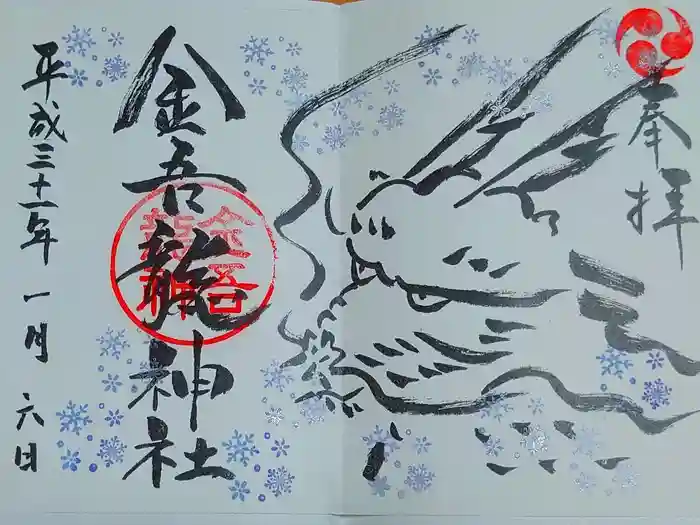 奉拝
金吾龍神社
金吾
龍神
平成三十一年一月六日